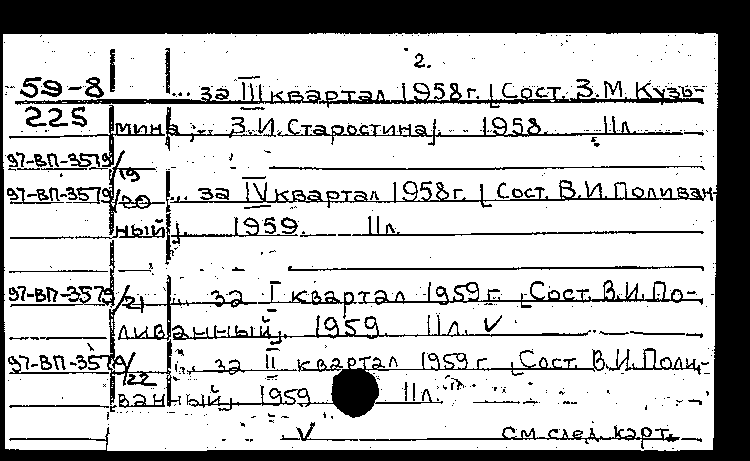 2.
59-8 ... за III квартал 1958г. [Сост. З.М. Кузь-
225 мина, З.И. Старостина]. 1958. 11л.
97-ВП-3579/19
97-ВП-3579/20 ... за IV квартал 1958г. [Сост. В.И. Поливан-
ный]. 1959. 11л.
97-ВП-3579/21 ... за I квартал 1959г. [Сост. В.И. По-
ливанный]. 1959. 11л. ✓
97-ВП-3579/22 ... за II квартал 1959г. [Сост. В.И. Поли-
ванный]. 1959 11л.
✓ см. след. карт.